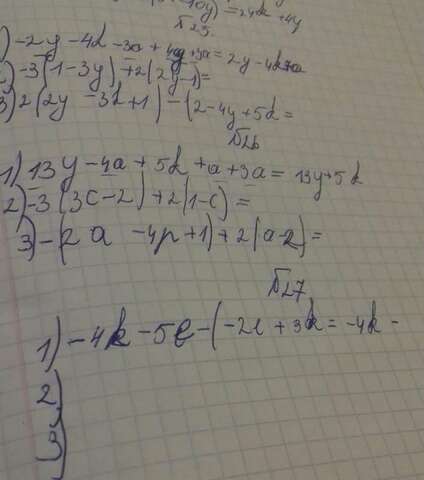 10y) = 24k + 4y
Б25.
1) -2y - 4d - 3a + 4y + 3a = 2y - 4d
2) -3(1-3y) + 2(2y-1) =
3) 2(2y - 3d + 1) - (2 - 4y + 5d =
Б26
1) 13y - 4a + 5d + a + 3a = 13y + 5d
2) -3(3c-2) + 2(1-c) =
3) -(2a - 4p + 1) + 2(a-2) =
Б27
1) -4k - 5l - (-2l + 3k = -4k -
2)
3)